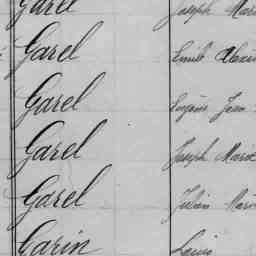 Garel Joseph Marie
Garel Emile Alexis
Garel Eugène Jean
Garel Joseph Marie
Garel Julien Marie
Garin Louis